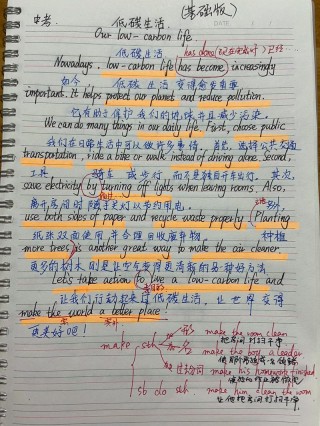 中考 低碳生活 (基础版)
Our low-carbon life
低碳生活 has done (现在完成时) 已经
Nowadays, low-carbon life (has become) increasingly
如今 低碳生活 变得愈发重要
important. It helps protect our planet and reduce pollution.
它有助于保护我们的地球并且减少污染.
We can do many things in our daily life. First, choose public
我们在日常生活中可以做许多事情. 首先, 选择公共交通
transportation, ride a bike or walk instead of driving alone. Second,
工具 骑车 或步行, 而不是独自开车出行. 其次,
save electricity by turning off lights when leaving rooms. Also,
离开房间时随手关灯以节约用电.
use both sides of paper and recycle waste properly. (Planting
纸张双面使用, 并合理回收废弃物. 种植
more trees) is another great way to make the air cleaner.
更多的树木则是让空气变得更清新的另一种好方法
Let's take action to live a low-carbon life and
让我们行动起来过低碳生活, 让世界变得
make the world a better place!
更美好吧!
make sth 形 make the room clean
把房间打扫干净
名 make the boy a leader
过去分词 make his homework finished
sb do sth make him clean the room
让他把房间打扫干净